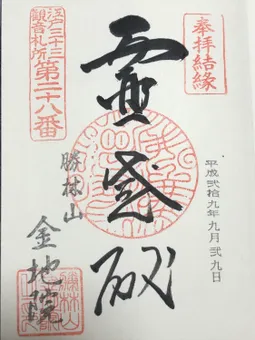 奉拝結縁
平成弐拾九年九月弐九日
靈感殿
江戸三十三
観音札所
第二十八番
勝林山
金地院